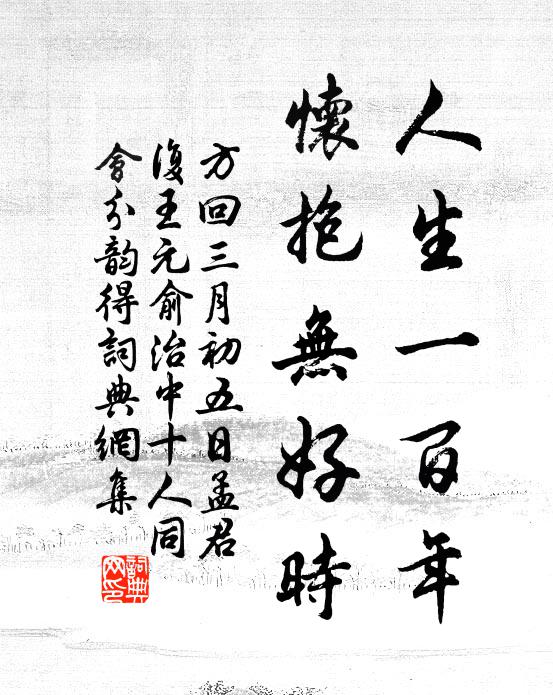 人生一百年
懷抱無好時
方回三月初五日孟君
復王元俞治中十人同
會分韵得詞典網集
詞典網印